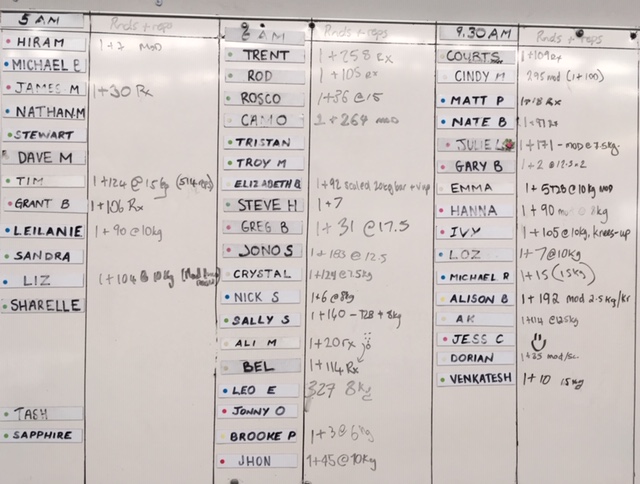 5 AM Rnds + reps
HIRAM 1+2 mod
MICHAEL B
JAMES M 1+30 Rx
NATHAN M
STEWART
DAVE M
TIM 1+124 @ 15kg
GRANT B 1+106 Rx
LEILANIE 1+90 @10kg
SANDRA
LIZ 1+104 @ 10kg
SHARELLE
TASH
SAPPHIRE
AM Rnds + reps
TRENT 1+258 Rx
ROD 1+105 Rx
ROSCO 1+36 @15
CAMO 2+264 mod
TRISTAN
TROY M
ELIZABETH B 1+92 scaled 20kg bar +
STEVE H 1+7
GREG B 1+31 @17.5
JONO S 1+183 @ 12.5
CRYSTAL 1+124@7.5kg
NICK S 1+6 @8kg
SALLY S 1+160 - + 8kg
ALI M 1+20 rx
BEL 1+114 Rx
LEO E 327 8kg
JONNY O
BROOKE P 1+3@6kg
JHON 1+45@10kg
9.30AM Rnds + reps
COURTS 1+109 Rx
CINDY M 295 mod (1+100)
MATT P 1+18 Rx
NATE B
JULIE 1+171 - mod @7.5kg
GARY B 1+2 @12.5 x2
EMMA @10kg mod
HANNA 1+90 mod @ 8kg
IVY 1+105@10kg, knees-up
LOZ 1+7@10kg
MICHAEL R 1+15 (15kg)
ALISON B 1+192 mod 2.5kg/kr
AK 1+114 @12.5kg
JESS C
DORIAN 1+35 mod/sc.
VENKATESH 1+10 15kg